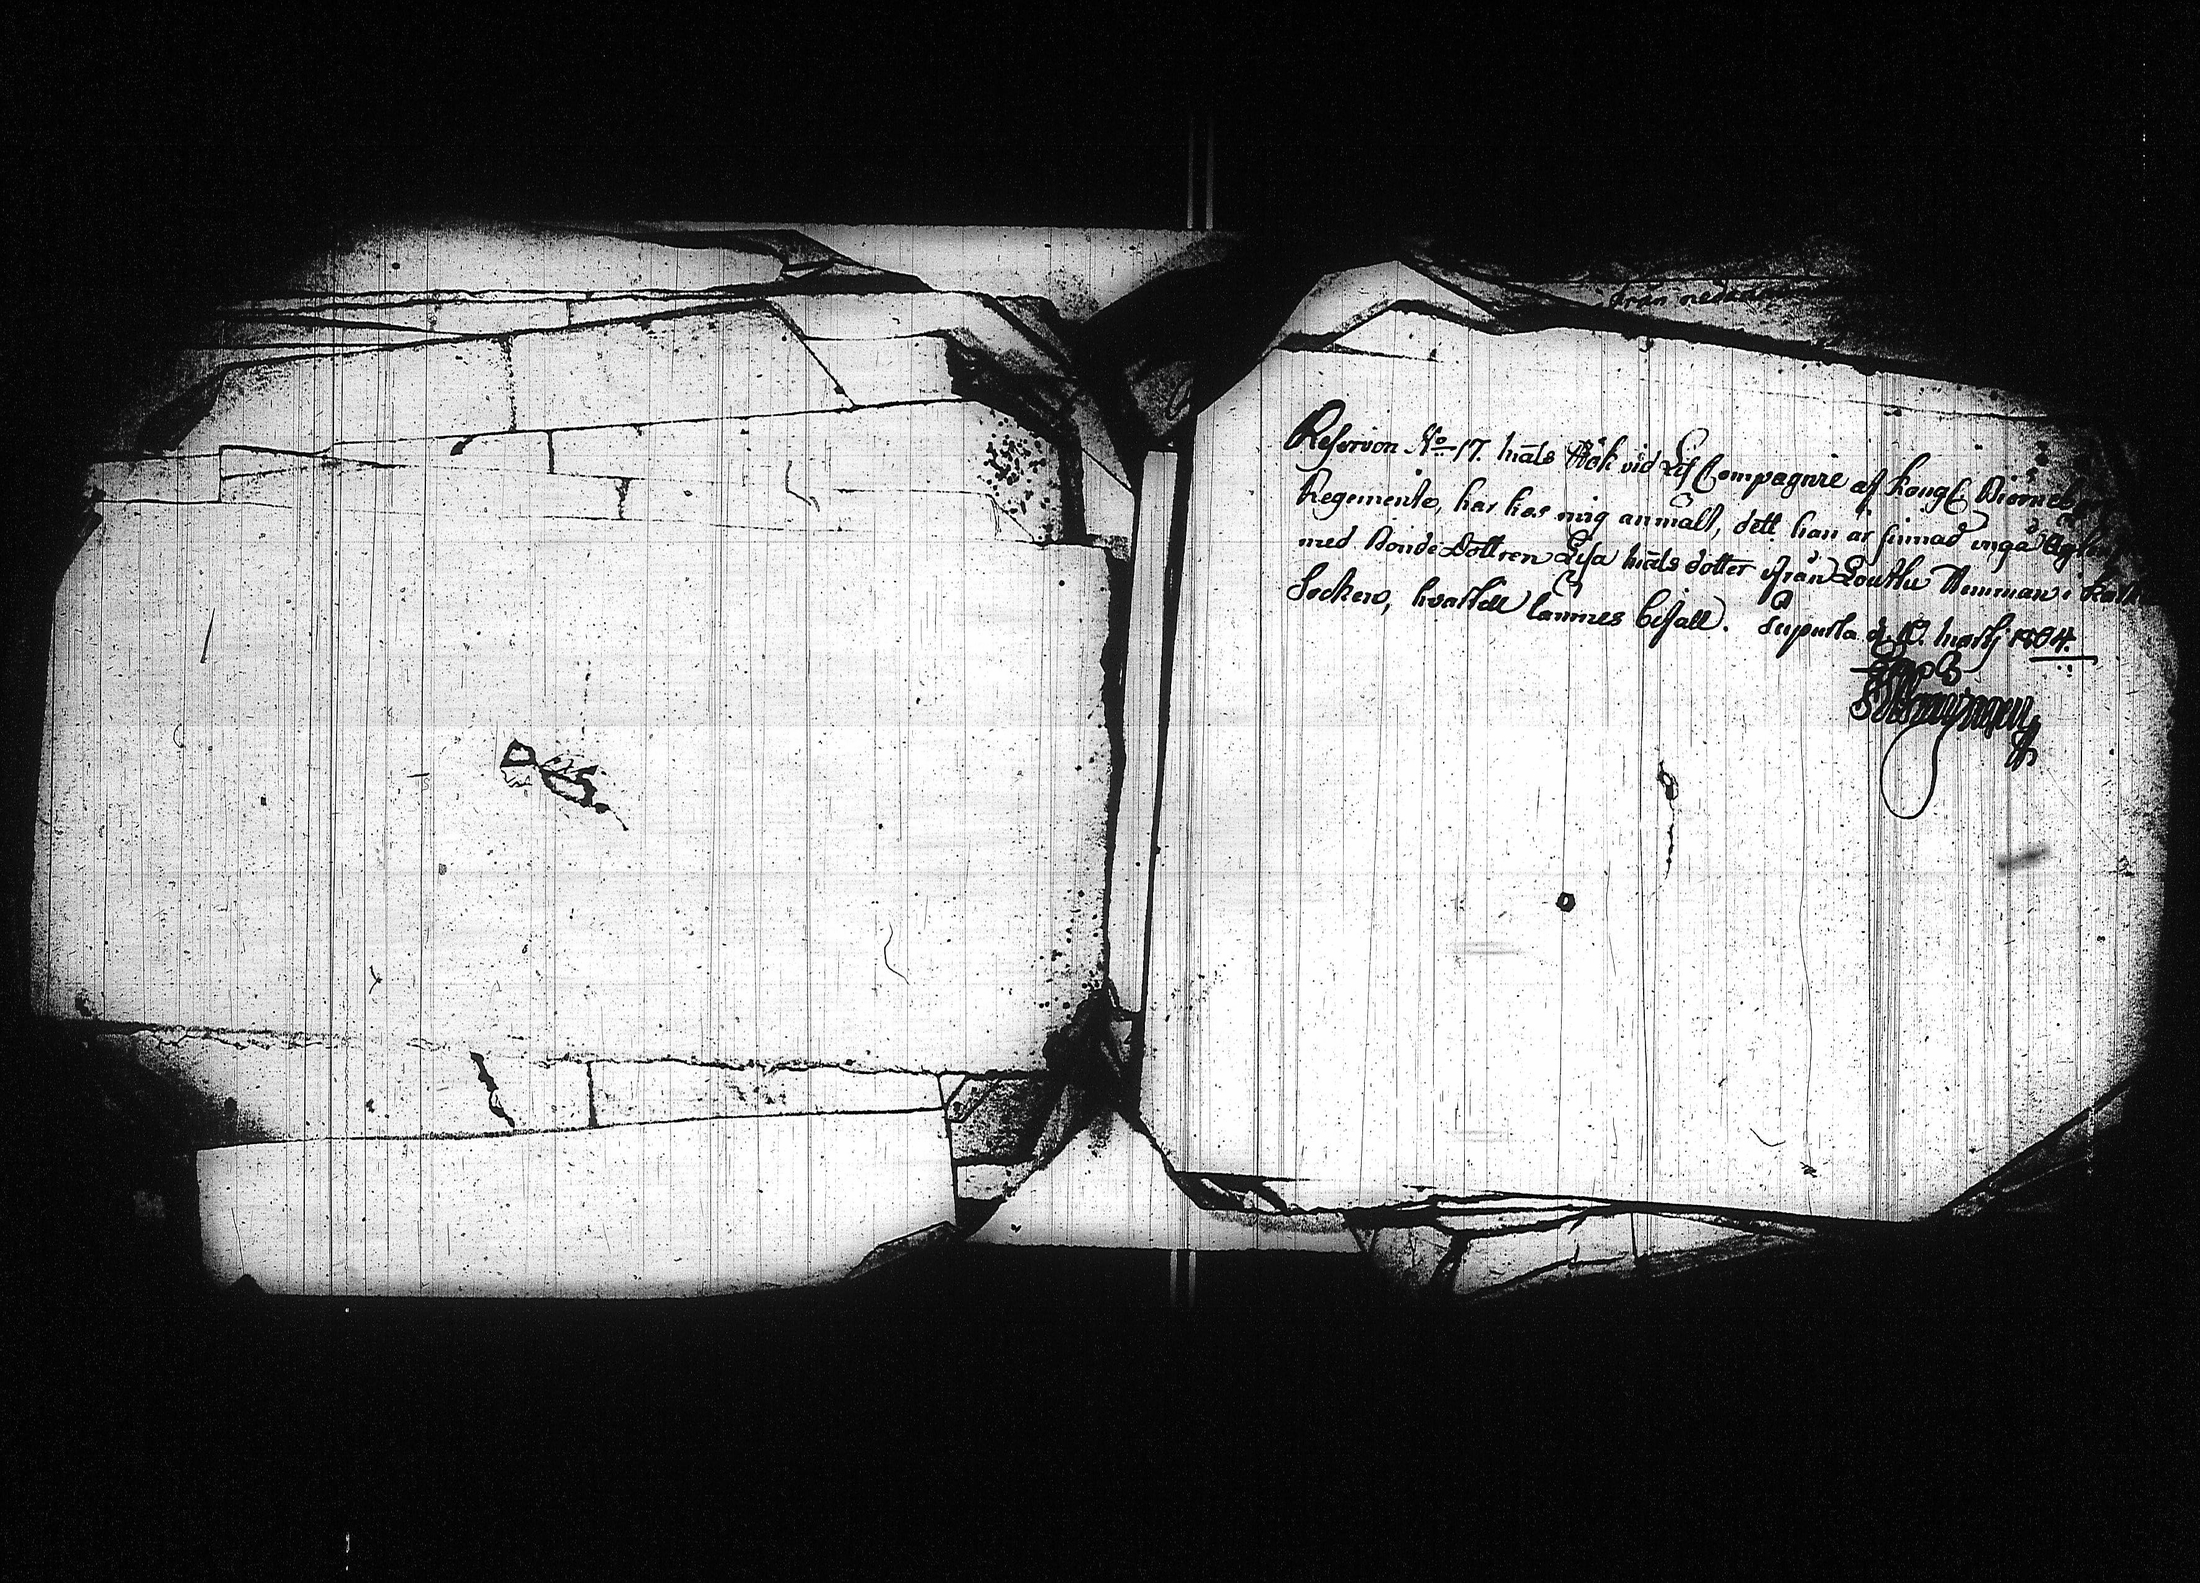 från
Reserven No 17. Mats Bök vid Lif Compagnie af Kongl. Biörneb
Regemente, har hos mig anmält, dett han är sinnad ingå
med Bonde Dottren Lisa Matsdotter ifrån Louhu Hemman i
Socken, hvartill lämnes bifall. d. Martij 1804.